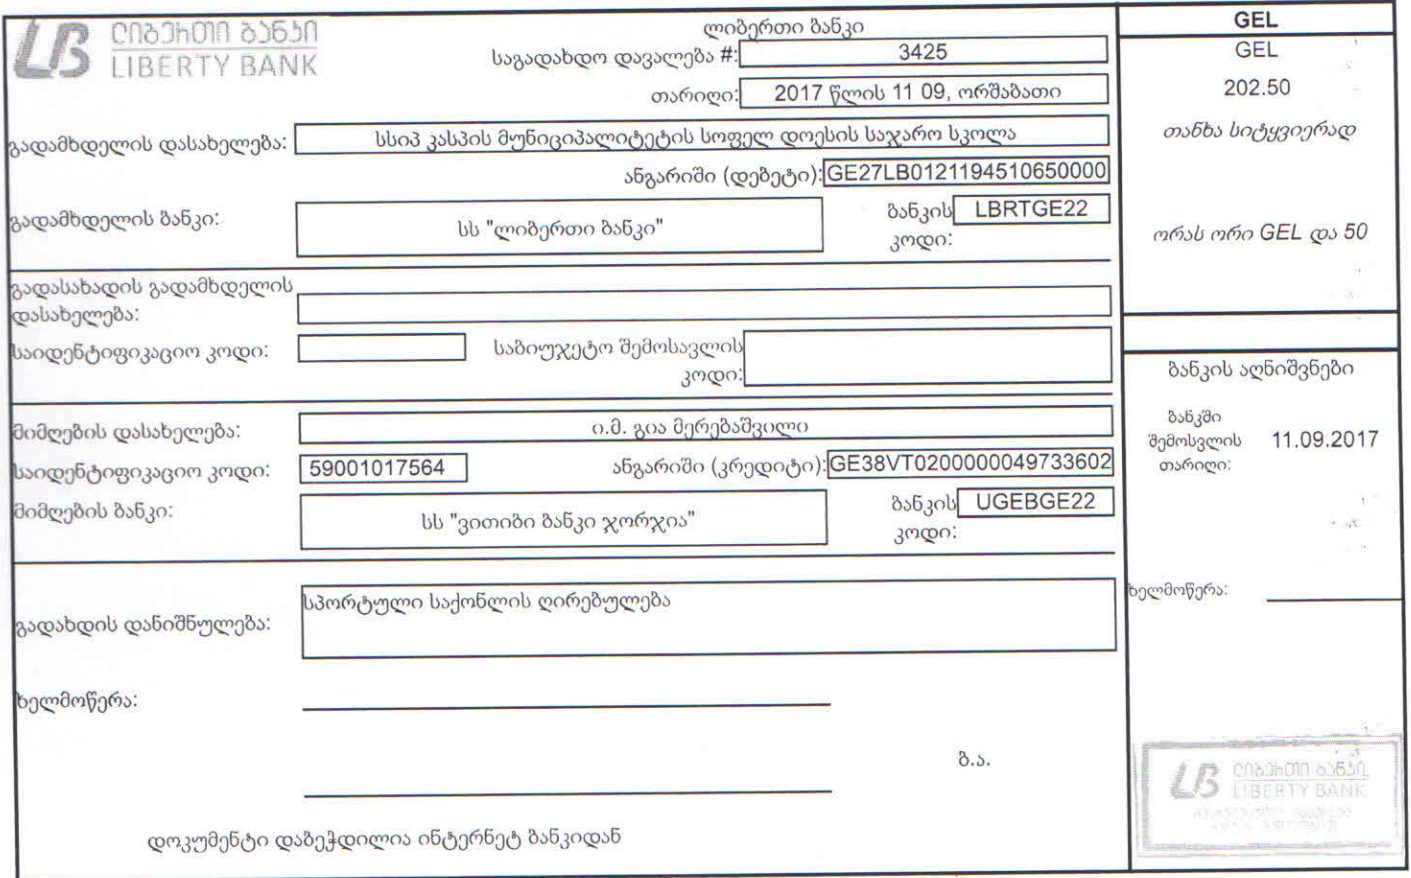 ლიბერთი ბანკი
LIBERTY BANK
ლიბერთი ბანკი
საგადახდო დავალება #: 3425
თარიღი: 2017 წლის 11 09, ორშაბათი
გადამხდელის დასახელება: სსიპ კასპის მუნიციპალიტეტის სოფელ დოესის საჯარო სკოლა
ანგარიში (დებეტი): GE27LB0121194510650000
გადამხდელის ბანკი: სს "ლიბერთი ბანკი" ბანკის კოდი: LBRTGE22
გადასახადის გადამხდელის
დასახელება:
საიდენტიფიკაციო კოდი: საბიუჯეტო შემოსავლის
კოდი:
მიმღების დასახელება: ი.მ. გია მერებაშვილი
საიდენტიფიკაციო კოდი: 59001017564 ანგარიში (კრედიტი): GE38VT0200000049733602
მიმღების ბანკი: სს "ვითიბი ბანკი ჯორჯია" ბანკის კოდი: UGEBGE22
გადახდის დანიშნულება: სპორტული საქონლის ღირებულება
ხელმოწერა:
ბ.ა.
დოკუმენტი დაბეჭდილია ინტერნეტ ბანკიდან
GEL
GEL
202.50
თანხა სიტყვიერად
ორას ორი GEL და 50
ბანკის აღნიშვნები
ბანკში
შემოსვლის
თარიღი: 11.09.2017
ხელმოწერა:
ლიბერთი ბანკი
LIBERTY BANK